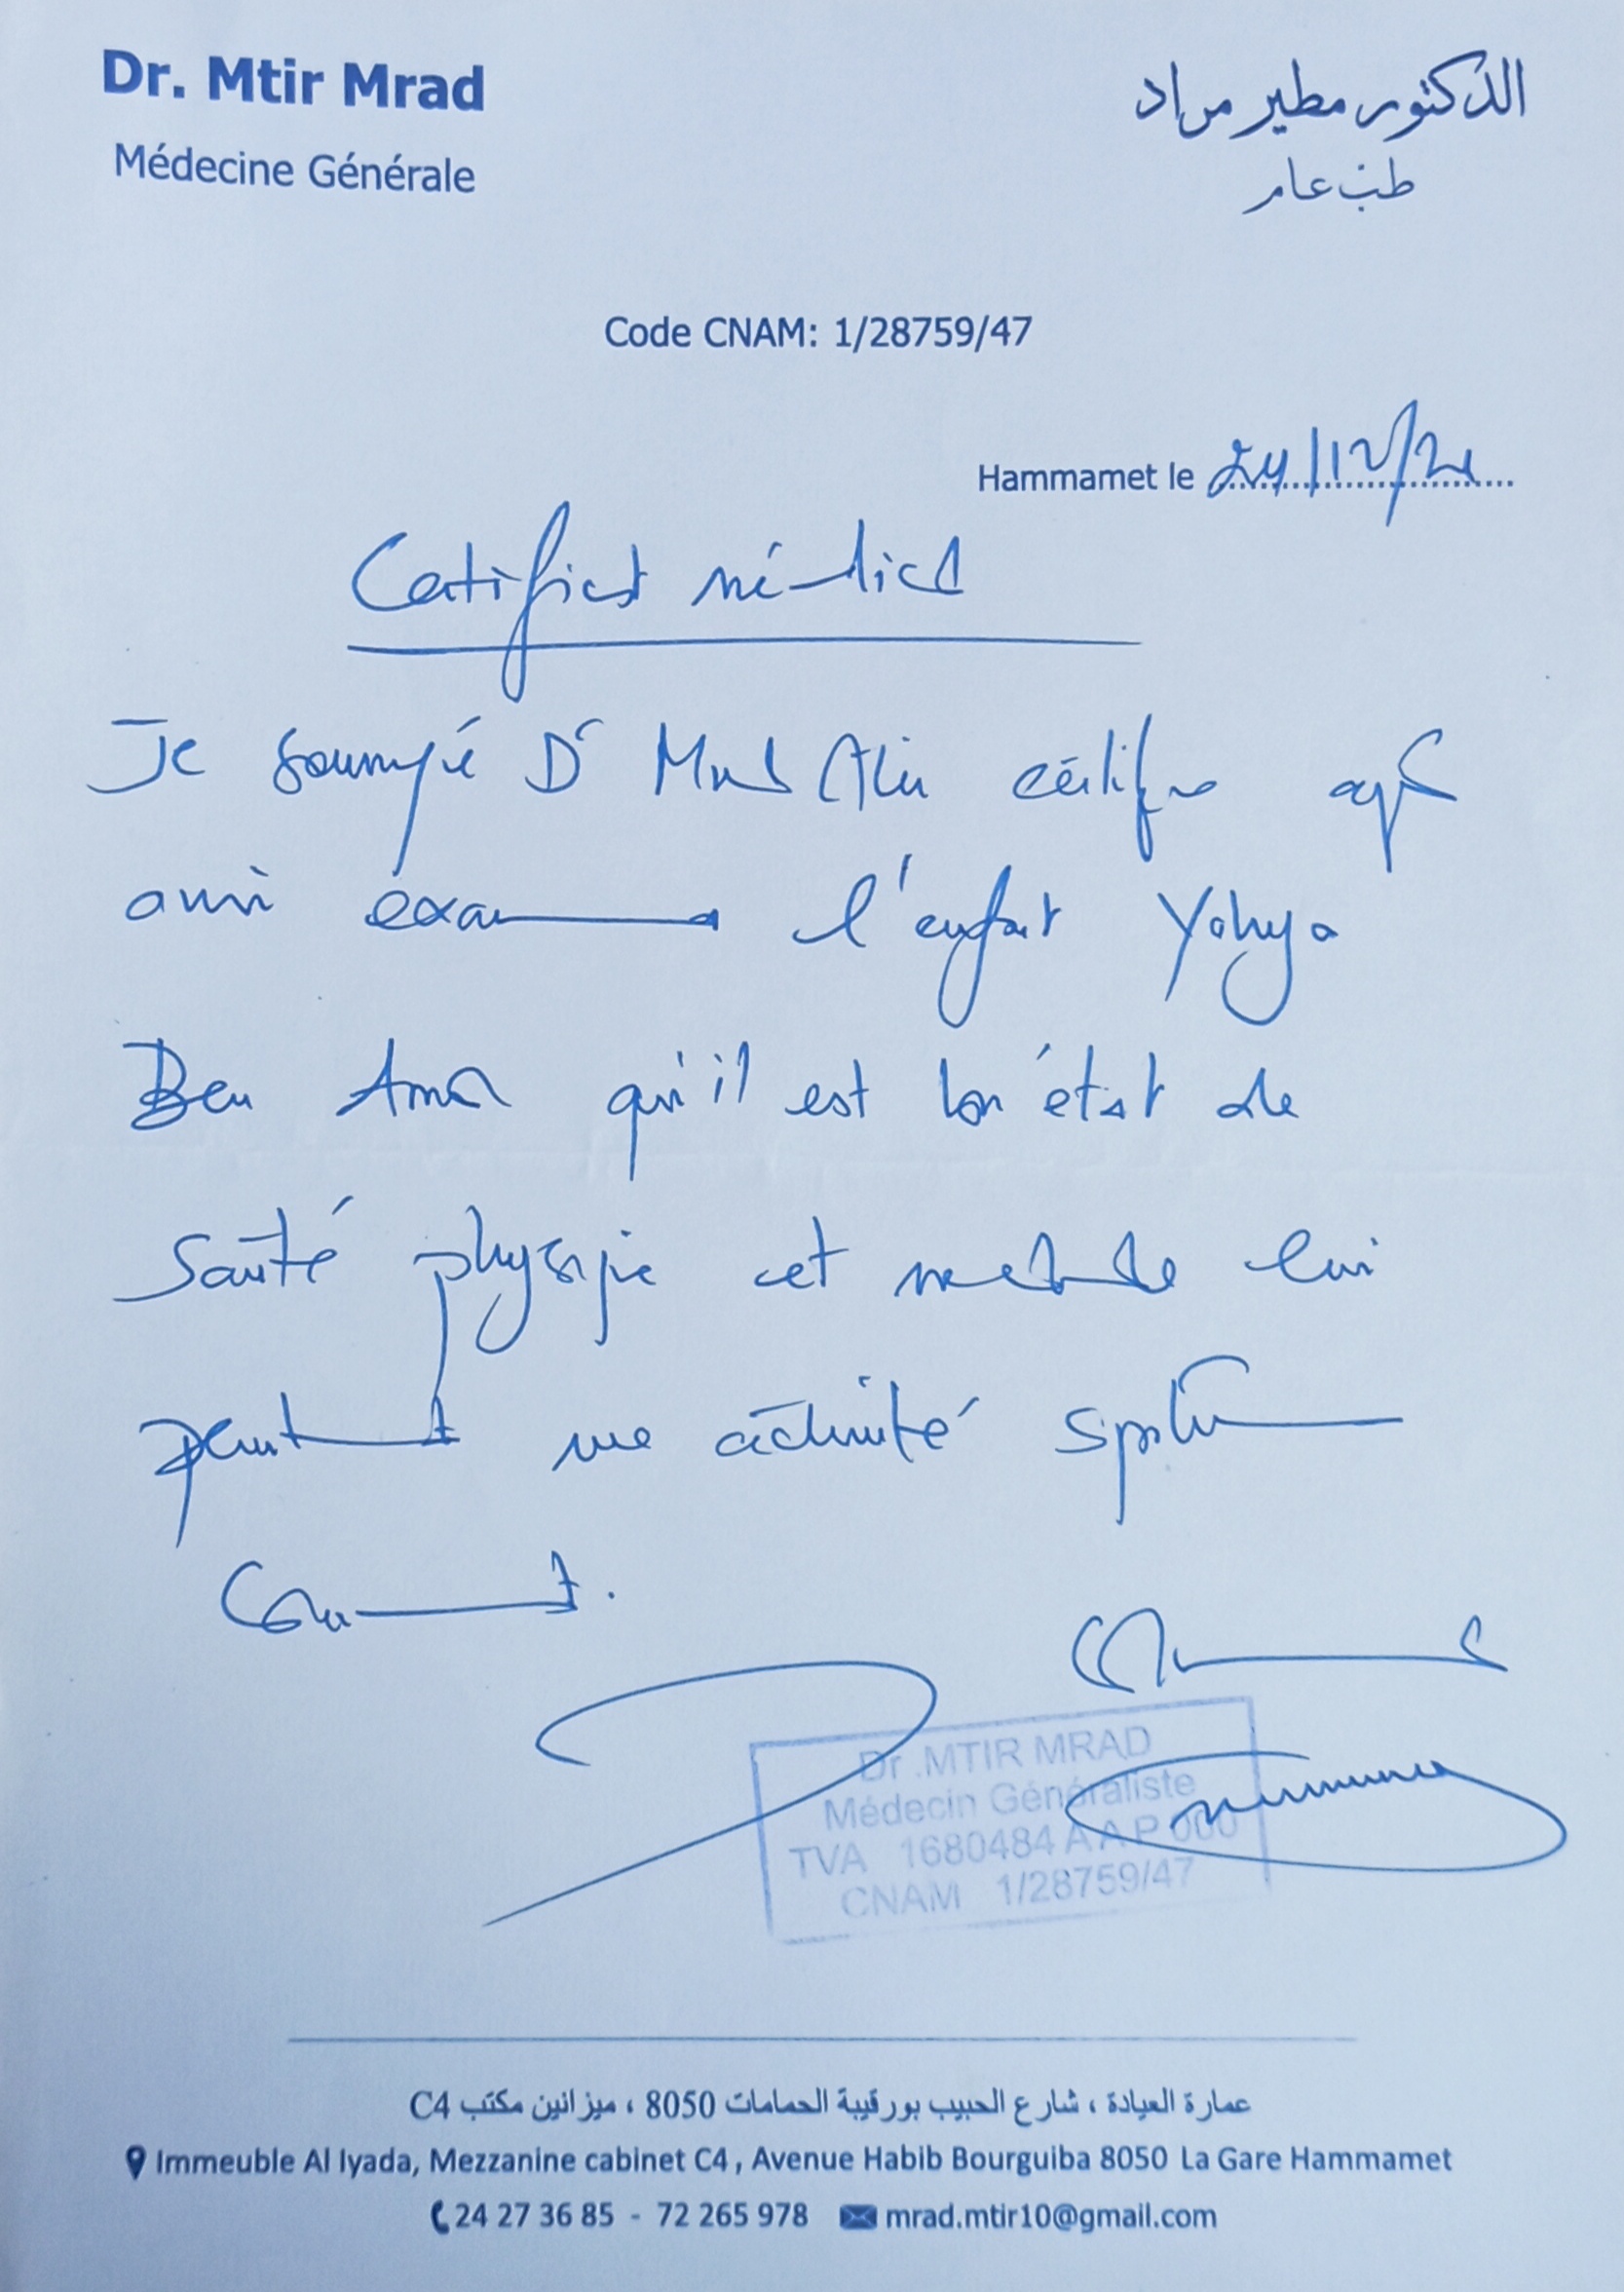 Dr. Mtir Mrad
الدكتور مطير مراد
Médecine Générale
طب عام
Code CNAM: 1/28759/47
Hammamet le 24/12/21
Certificat médical
Je soussigné Dr Mrad certifie après
avoir examiné l'enfant Yahya
Ben Amor qu'il est bon état de
santé physique et mentale lui
permettant une activité sportive
Dr .MTIR MRAD
Médecin Généraliste
TVA 1680484 A A P 000
CNAM 1/28759/47
عمارة العيادة ، شارع الحبيب بورقيبة الحمامات 8050 ، ميزانين مكتب C4
Immeuble Al Iyada, Mezzanine cabinet C4 , Avenue Habib Bourguiba 8050 La Gare Hammamet
24 27 36 85 - 72 265 978 mrad.mtir10@gmail.com